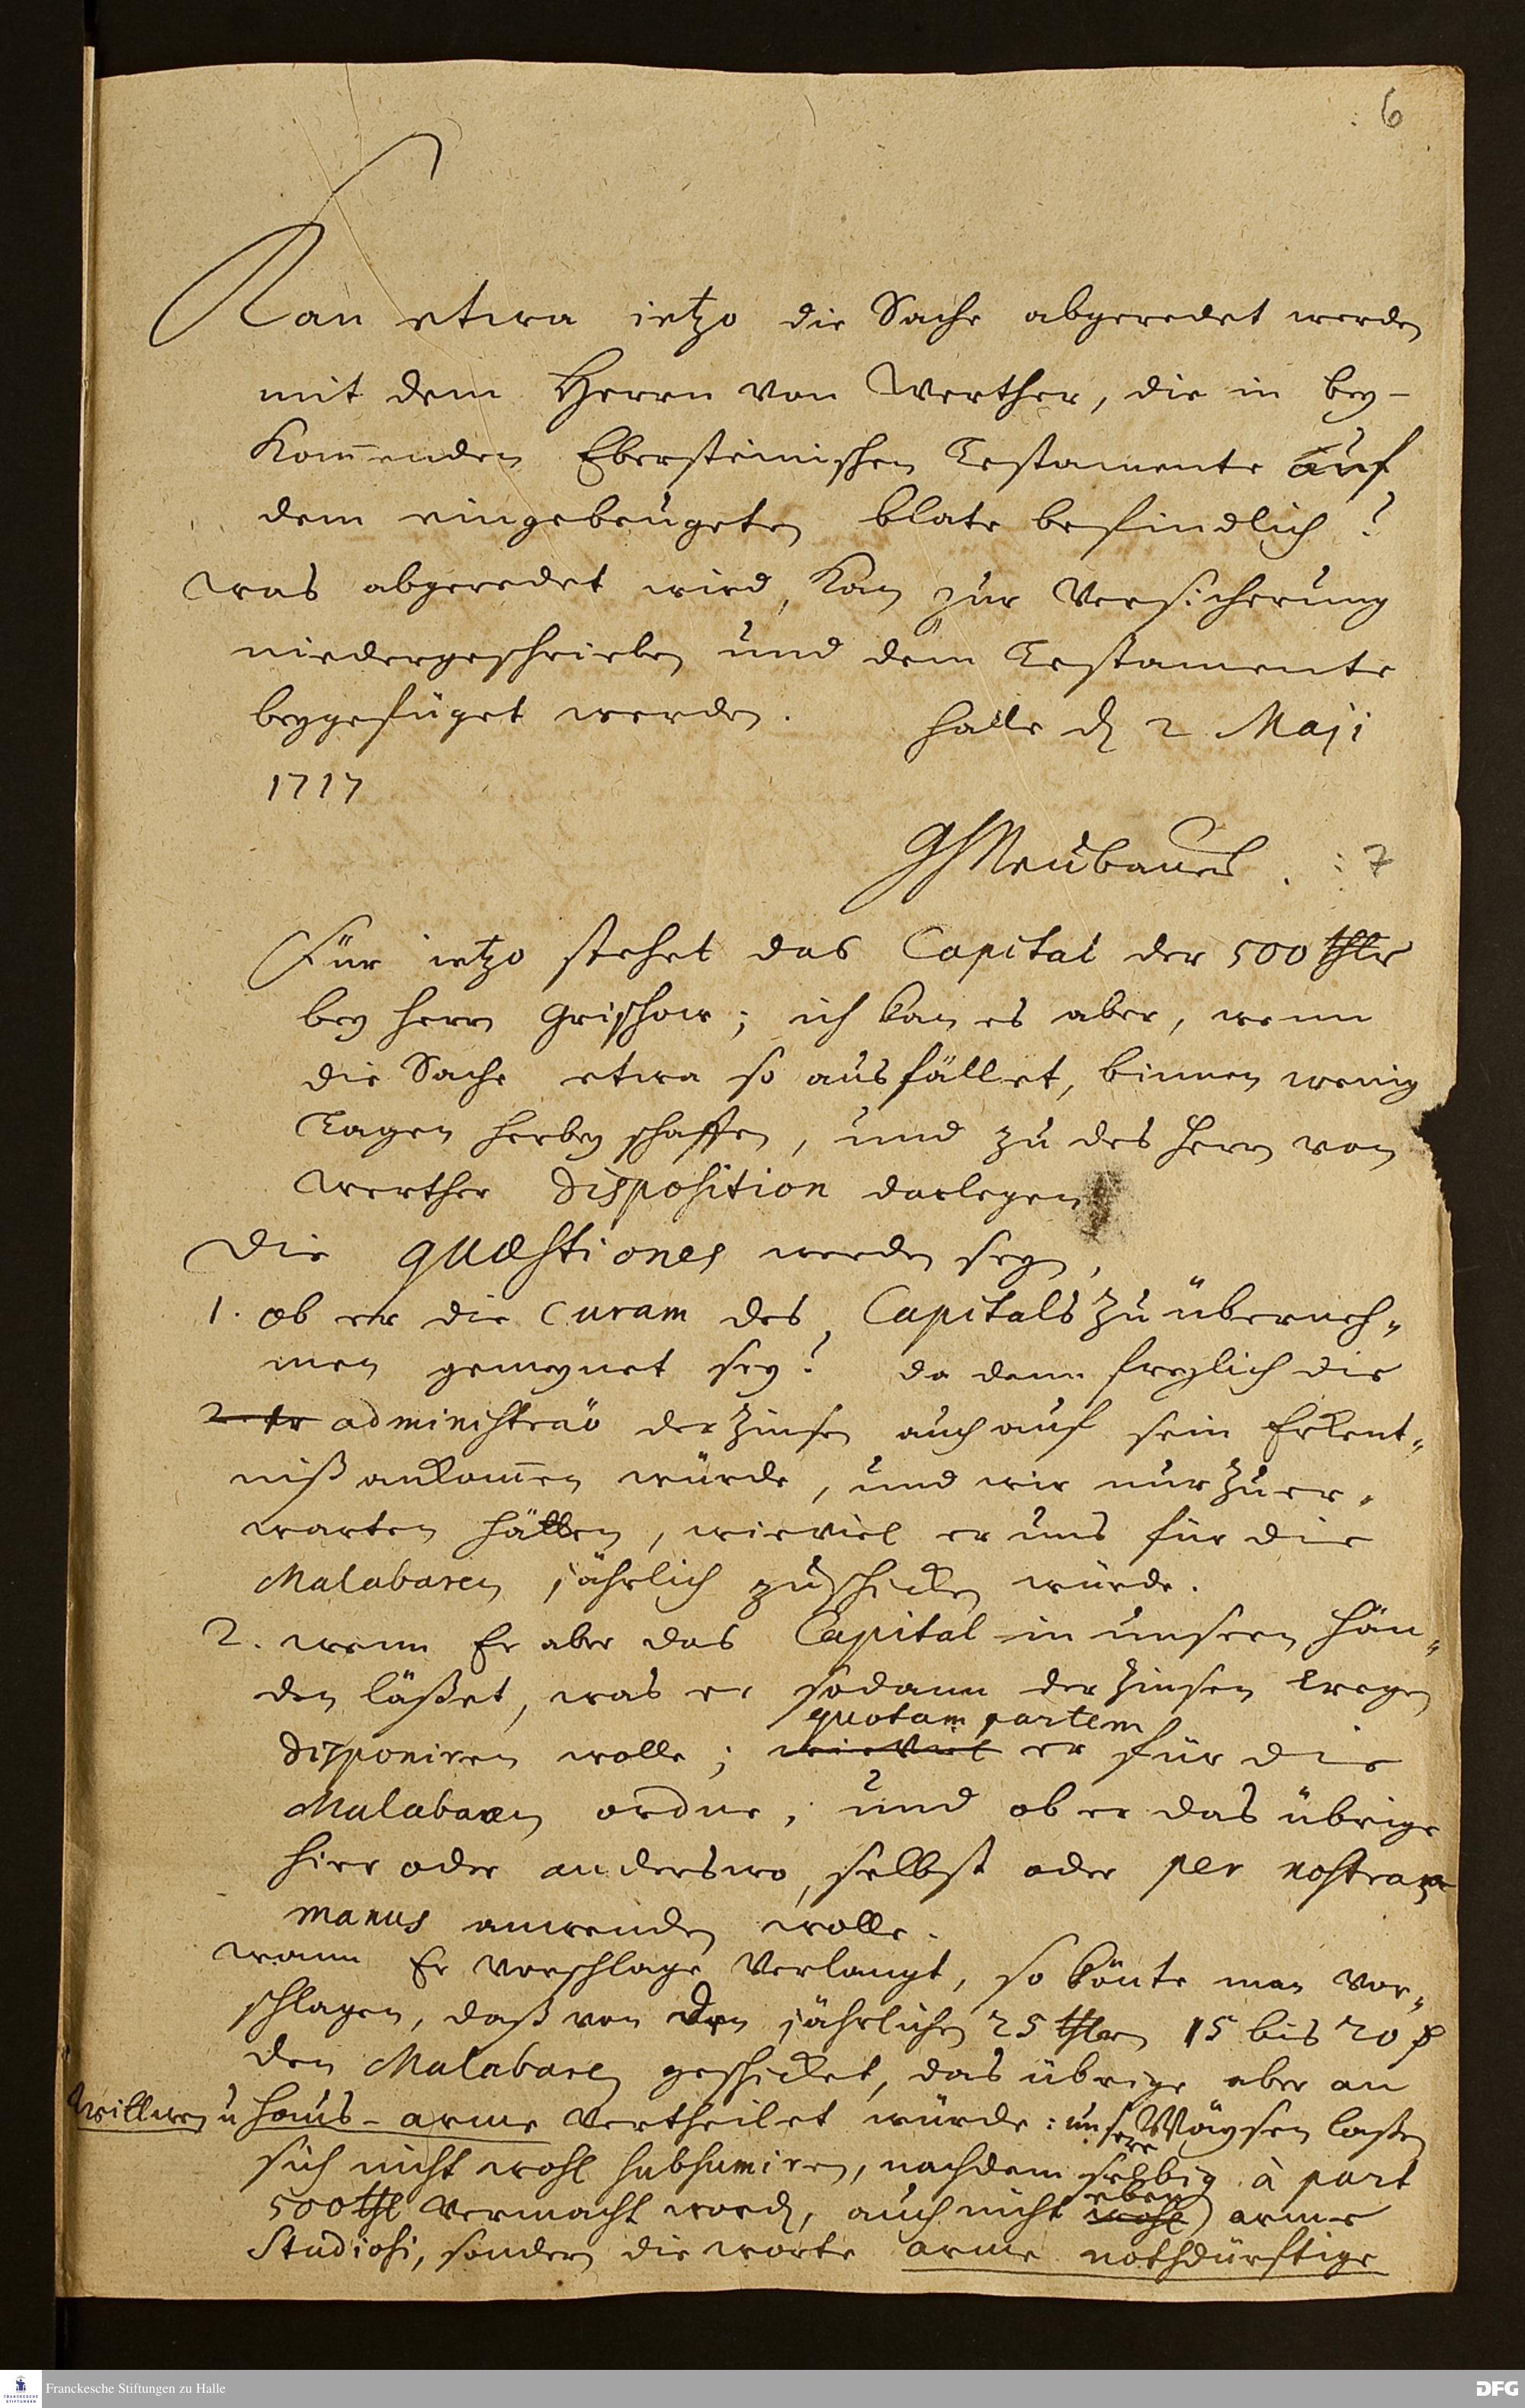 6
Kan etwa ietzo die Sache abgeredet werden
mit dem Herrn von Werther, die in bey-
kom̅enden Ebersteinischen Testamente auf
dem eingebeugeten blate befindlich?
was abgeredet wird, kan zur Versicherung
niedergeschrieben und dem Testamente
beygefüget werden. Halle d 2 Maji
1717
GHNeubauer. 7
Für ietzo stehet das Capital der 500 thlr
bey Herrn Grischow; ich kan es aber, wenn
die Sache etwa so ausfället, binnen wenig
Tagen herbey schaffen, und zu des Herrn von
Werther Disposition darlegen
Die quæstiones werden seyn,
1. ob er die curam des Capitals zu überneh„
men gemeynet sey? da denn freylich die
2. er administraõ der Zinsen auch auf sein Erkent„
niß ankom̅en würde, und wir nur zu er„
warten hätten, wieviel er uns für die
Malabaren jährlich zuschicken würde.
2. wenn Er aber das Capital in unsern Hän„
den läßet, was er sodann der Zinsen wegen
quotam partem
disponiren wolle; wieviel er für die
Malabaren ordne, und ob er das übrige
hier oder anderswo, selbst oder per nostras
manus anwenden wolle.
wann Er Vorschlage verlangt, so könte man vor„
schlagen, daß von den jährlichen 25 thlern 15 bis 20
den Malabaren geschicket, das übrige aber an
Wittwen u Haus-arme vertheilet würde: unsere Wäysen laßen
sich nicht wohl subsumiren, nachdem selbig à part
eben
500 thl vermacht word, auch nicht wohl arme
Studiosi, sondern die worte arme nothdürftige
Franckesche Stiftungen zu Halle
DFG